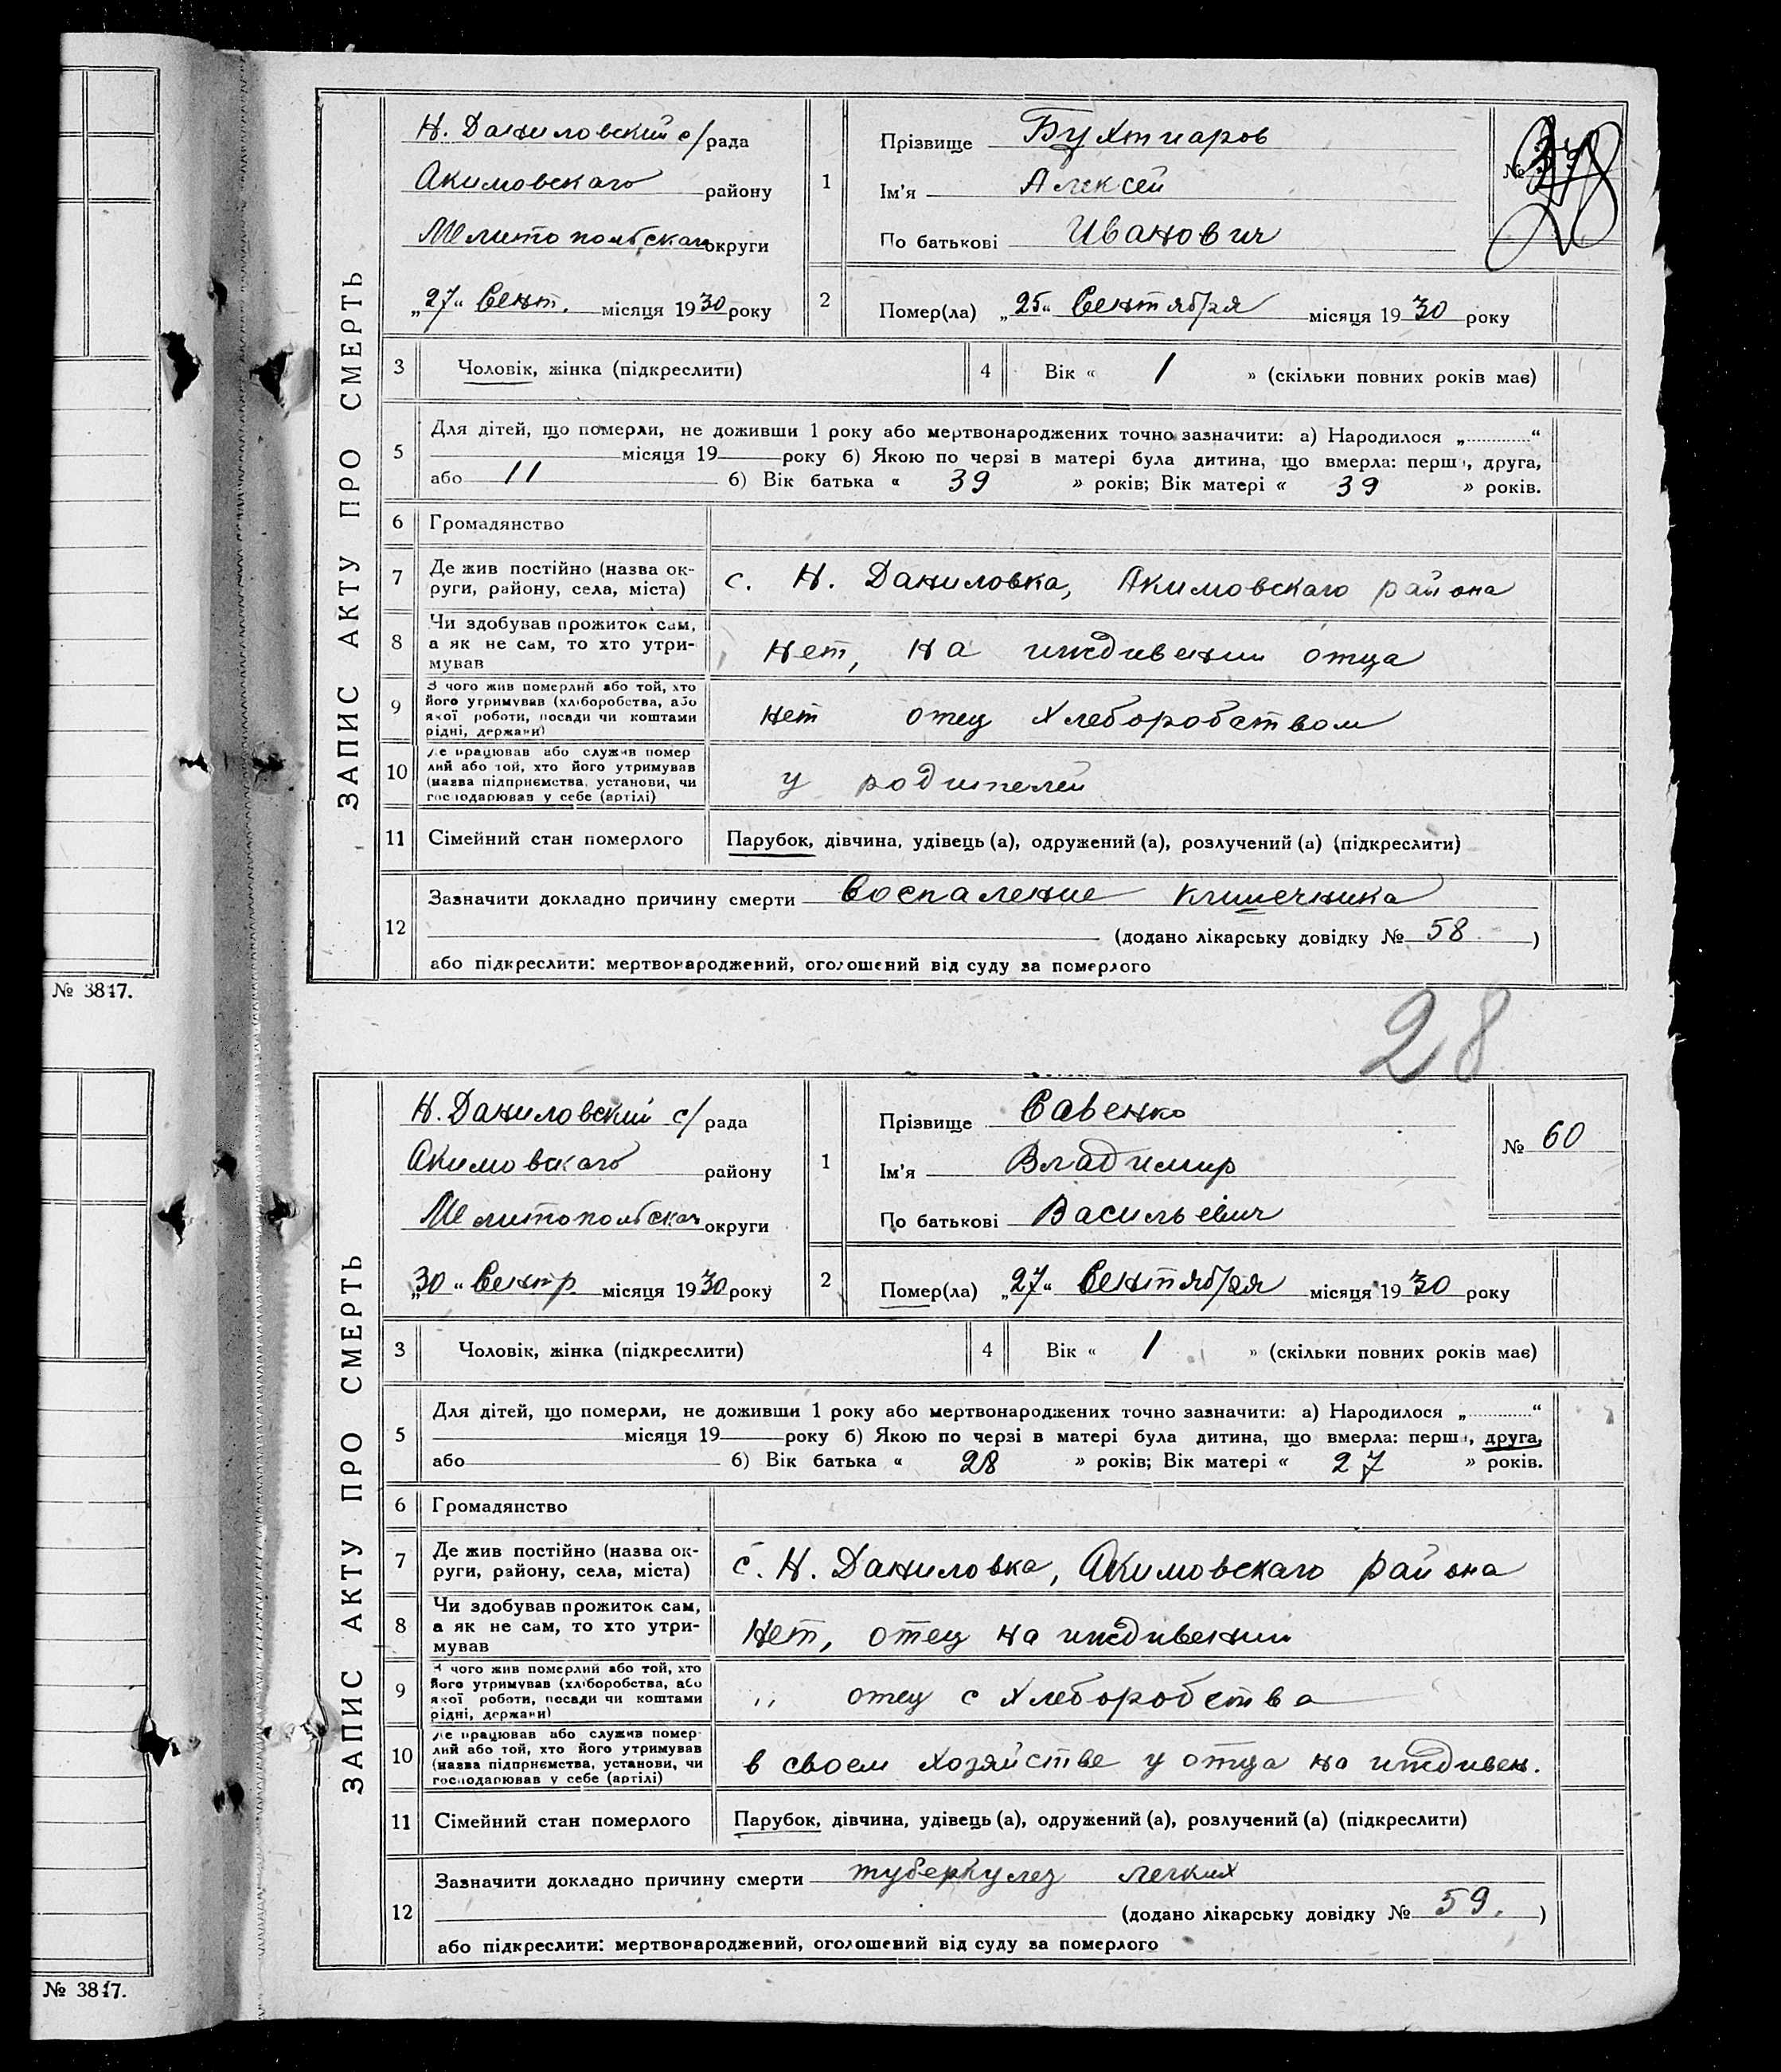 ЗАПИС АКТУ ПРО СМЕРТЬ
Н. Даниловский с/рада
Акимовскаго району
Мелитопольскаго округи
„27“ Сент. місяця 1930 року
1
Прізвище Бухтиаров
Ім'я Алексей
По батькові Иванович
№
2
Помер(ла) „25“ Сентября місяця 1930 року
3 Чоловік, жінка (підкреслити)
4 Вік « 1 » (скільки повних років має)
5 Для дітей, що померли, не доживши 1 року або мертвонароджених точно зазначити: а) Народилося „............“
місяця 19 року б) Якою по черзі в матері була дитина, що вмерла: перша, друга,
або 11 б) Вік батька « 39 » років; Вік матері « 39 » років.
6 Громадянство
7 Де жив постійно (назва ок-
руги, району, села, міста)
с. Н. Даниловка, Акимовскаго района
8 Чи здобував прожиток сам,
а як не сам, то хто утри-
мував
Нет, на иждивении отца
9 З чого жив померлий або той, хто
його утримував (хліборобства, або
якої роботи, посади чи коштами
рідні, держави)
нет отец хлеборобством
10 Де працював або служив помер
лий або той, хто його утримував
(назва підприємства, установи, чи
господарював у себе (артілі)
у родителей
11 Сімейний стан померлого
Парубок, дівчина, удівець (а), одружений (а), розлучений (а) (підкреслити)
12 Зазначити докладно причину смерти воспаление кишечника
(додано лікарську довідку № 58 )
або підкреслити: мертвонароджений, оголошений від суду за померлого
№ 3817.
28
ЗАПИС АКТУ ПРО СМЕРТЬ
Н. Даниловский с/рада
Акимовскаго району
Мелитопольскаго округи
„30“ Сентр. місяця 1930 року
1
Прізвище Савенко
Ім'я Владимир
По батькові Васильевич
№ 60
2
Помер(ла) „27“ Сентября місяця 1930 року
3 Чоловік, жінка (підкреслити)
4 Вік « 1 » (скільки повних років має)
5 Для дітей, що померли, не доживши 1 року або мертвонароджених точно зазначити: а) Народилося „............“
місяця 19 року б) Якою по черзі в матері була дитина, що вмерла: перша, друга,
або б) Вік батька « 28 » років; Вік матері « 27 » років.
6 Громадянство
7 Де жив постійно (назва ок-
руги, району, села, міста)
с. Н. Даниловка, Акимовскаго района
8 Чи здобував прожиток сам,
а як не сам, то хто утри-
мував
Нет, отец на иждивении
9 З чого жив померлий або той, хто
його утримував (хліборобства, або
якої роботи, посади чи коштами
рідні, держави)
" отец с хлеборобства
10 Де працював або служив помер-
лий або той, хто його утримував
(назва підприємства, установи, чи
господарював у себе (артілі)
в своем хозяйстве у отца на иждивен.
11 Сімейний стан померлого
Парубок, дівчина, удівець (а), одружений (а), розлучений (а) (підкреслити)
12 Зазначити докладно причину смерти туберкулез легких
(додано лікарську довідку № 59. )
або підкреслити: мертвонароджений, оголошений від суду за померлого
№ 3817.